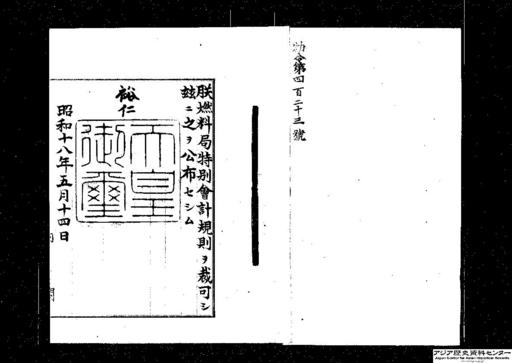 勅令第四百二十三號
朕燃料局特別會計規則ヲ裁可シ
玆ニ之ヲ公布セシム
裕仁
天皇
御璽
昭和十八年五月十四日
アジア歴史資料センター
Japan Center for Asian Historical Records